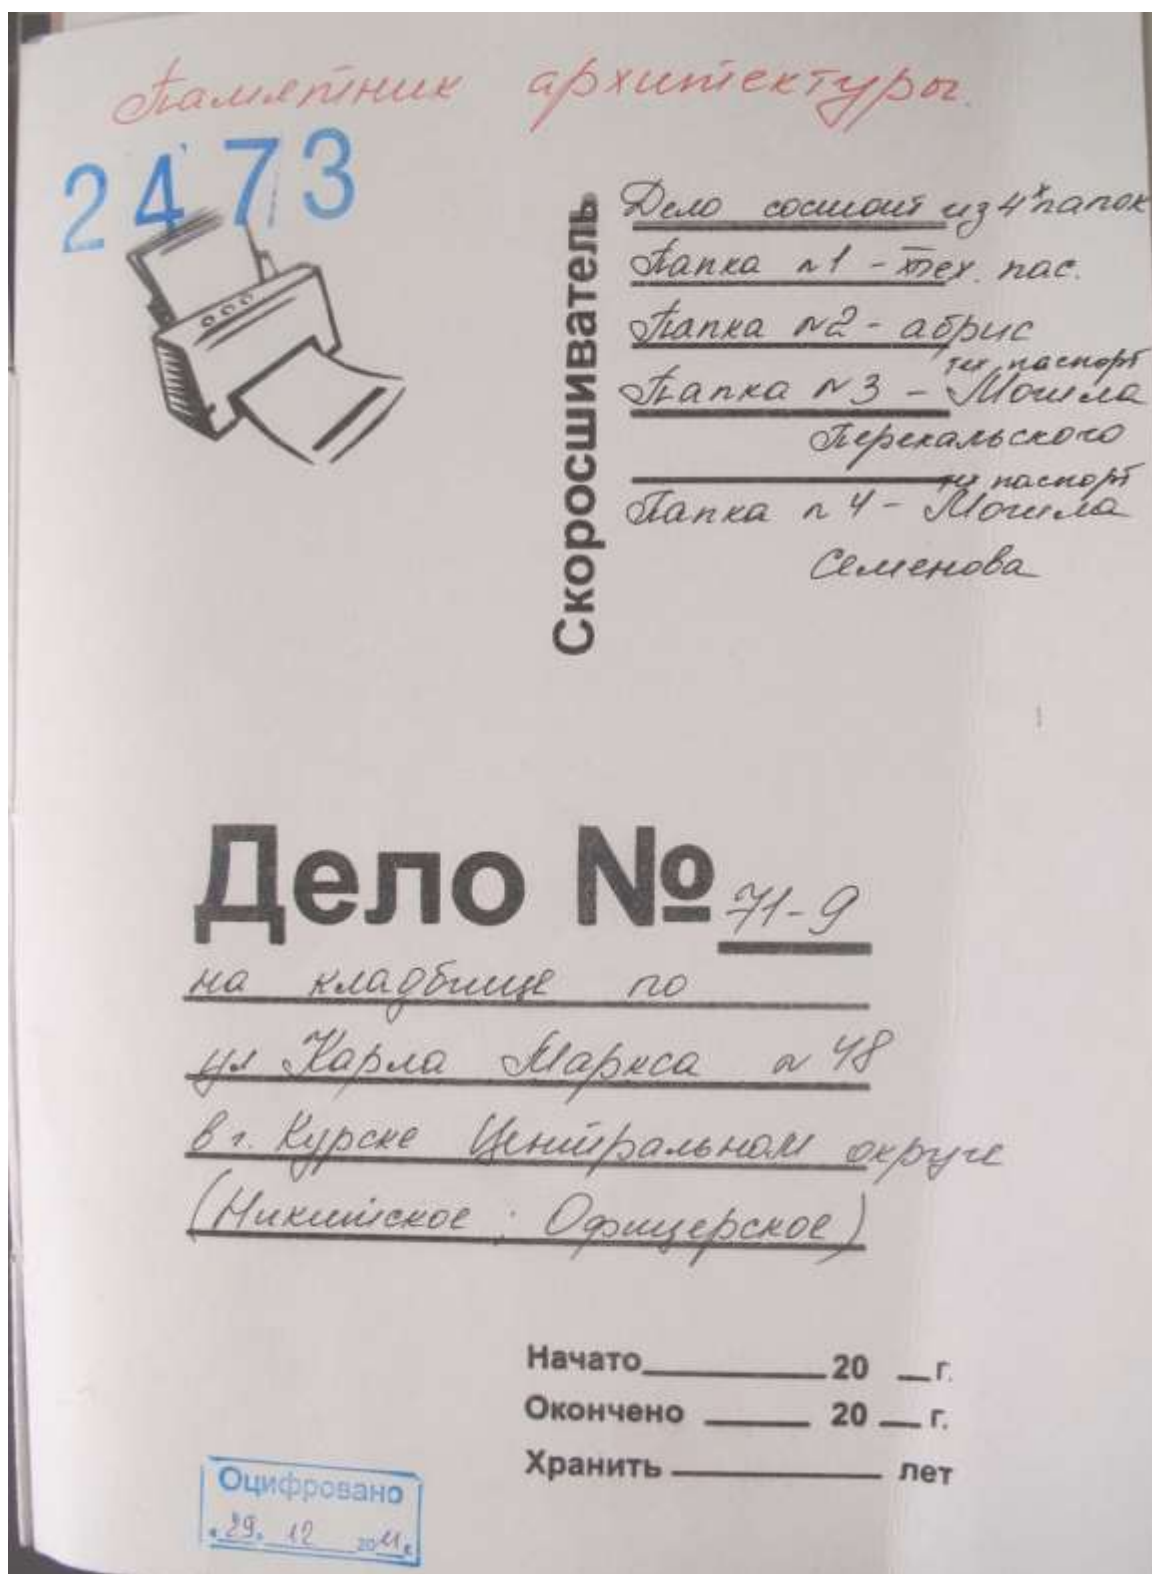 Памятник архитектуры.
2473
Скоросшиватель
Дело состоит из 4х папок
Папка №1 - тех. пас.
Папка №2 - абрис
тех паспорт
Папка №3 - Могила
Перекальского
тех паспорт
Папка №4 - Могила
Семенова
Дело № 71-9
на кладбище по
ул Карла Маркса № 48
в г. Курске Центральном округе
(Никитское ; Офицерское)
Начато 20 г.
Окончено 20 г.
Хранить лет
Оцифровано
«29» 12 2011г.